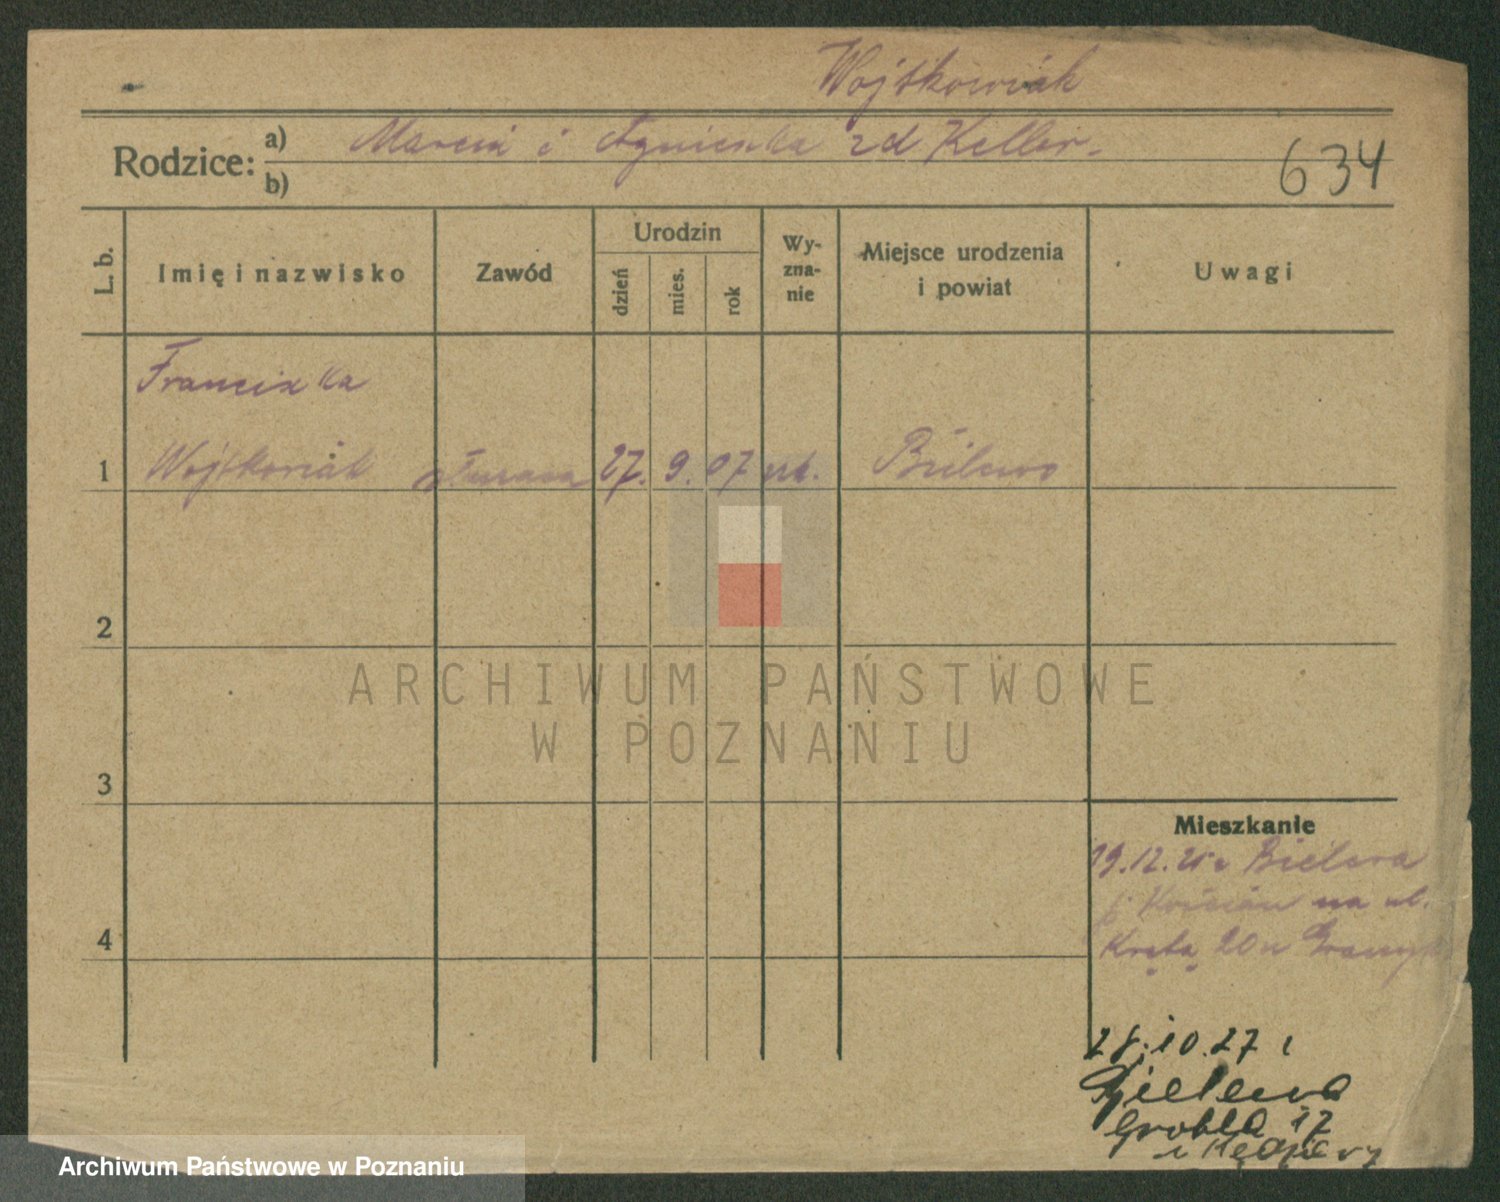 Wojtkowiak
Rodzice: a) Marcin i Agnieszka zd Keller.
b)
634
L. b.
Imię i nazwisko
Zawód
Urodzin
dzień
mies.
rok
Wy-
zna-
nie
Miejsce urodzenia
i powiat
Uwagi
Franciszka
1 Wojtkowiak służąca 27. 9. 07 rk. Bielewo
2
3
4
ARCHIWUM PAŃSTWOWE
W POZNANIU
Mieszkanie
29.12.25 z Bielewa
p. Kościan na ul.
Kręta 20 u
28.10.27 z
Bielewa
Grobla 17
u
Archiwum Państwowe w Poznaniu